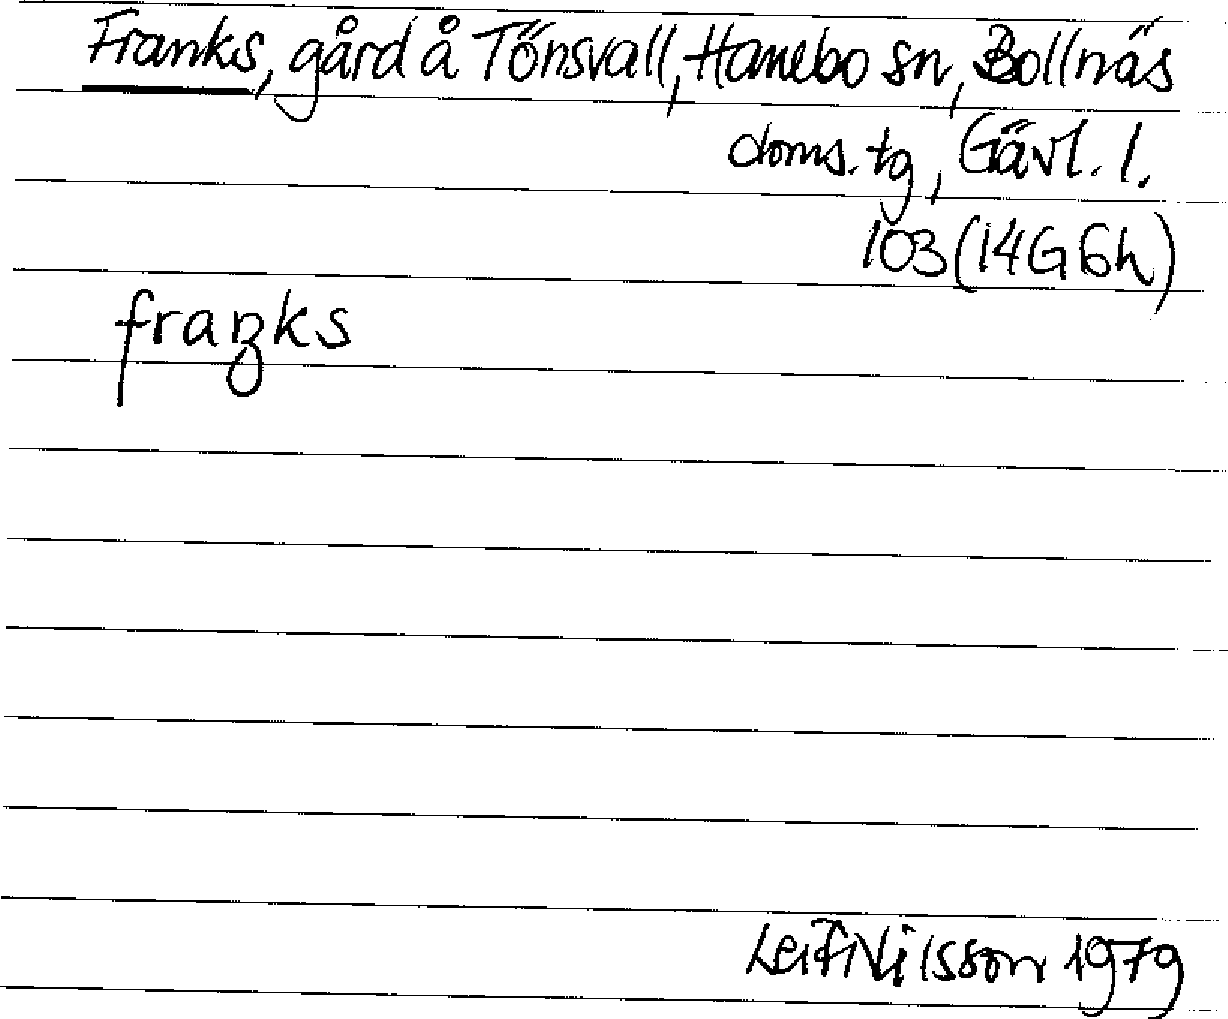 Franks, gård å Tönsvall, Hanebo sn, Bollnäs
doms. tg, Gävl. l.
103 (14G 6h)
fraŋks
Leif Nilsson 1979